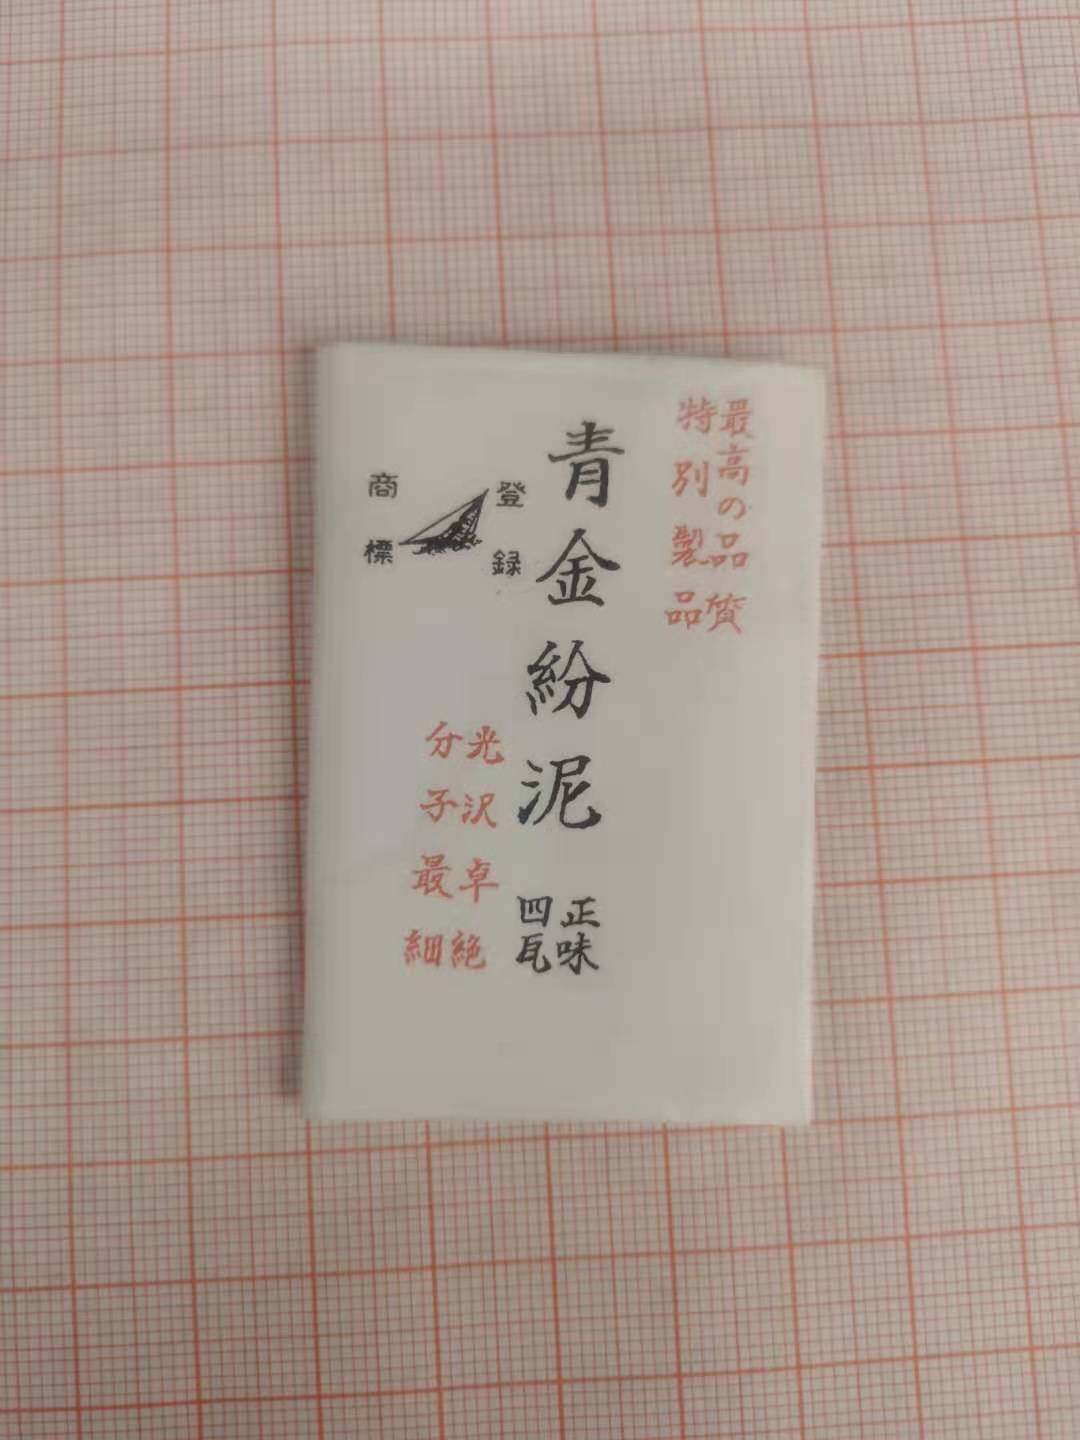 最高の品質
特別製品
青金紛泥
正味
四瓦
登録
商標
光沢卓絶
分子最細